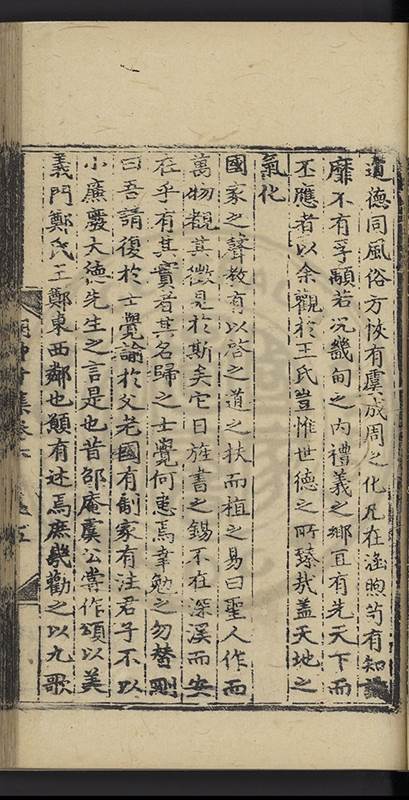 道德同風俗方恢有虞成周之化凡在涵煦茍有知識
靡不有孚顒若況畿甸之内禮義之鄉宜有先天下而
丕應者以余觀於王氏豈惟世德之所臻哉蓋天地之
氣化
國家之聲教有以啓之道之扶而植之易曰聖人作而
萬物覩其徵見於斯矣它日旌書之錫不在深溪而安
在乎有其實者其名歸之士覺何患焉幸勉之勿替剛
曰吾請復於士覺諭於父老國有制家有法君子不以
小廉廢大德先生之言是也昔邵庵虞公嘗作頌以美
義門鄭氏王鄭東西鄰也願有述焉庶幾勸之以九歌